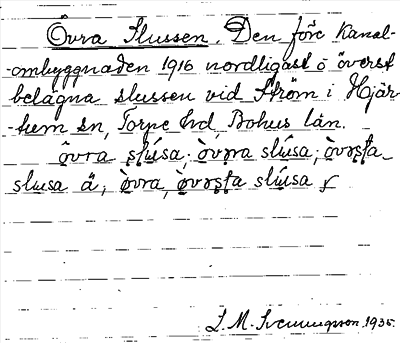 Övra Slussen. Den före Kanal-
-ombyggnaden 1916 nordligast o överst
belägna slussen vid Ström i Hjär-
-tum sn, Torpe hd, Bohus län.
övra slúsa; òvra slúsa; òvrsta
slusa ä; òvra, òvrsta slúsa
S. M. Svenungsson. 1935.